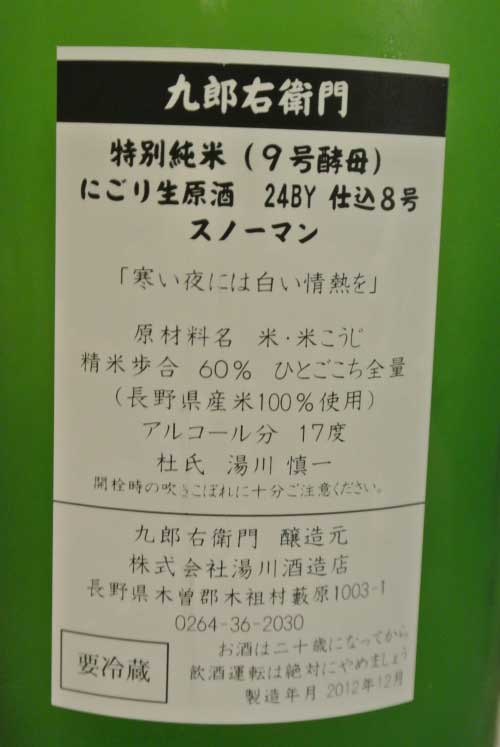 九郎右衛門
特別純米(9号酵母)
にごり生原酒 24BY 仕込8号
スノーマン
「寒い夜には白い情熱を」
原材料名 米・米こうじ
精米歩合 60% ひとごこち全量
(長野県産米100%使用)
アルコール分 17度
杜氏 湯川 慎一
開栓時の吹きこぼれに十分ご注意ください。
九郎右衛門 醸造元
株式会社湯川酒造店
長野県木曽郡木祖村藪原1003-1
0264-36-2030
要冷蔵
お酒は二十歳になってから
飲酒運転は絶対にやめましょう
製造年月 2012年12月